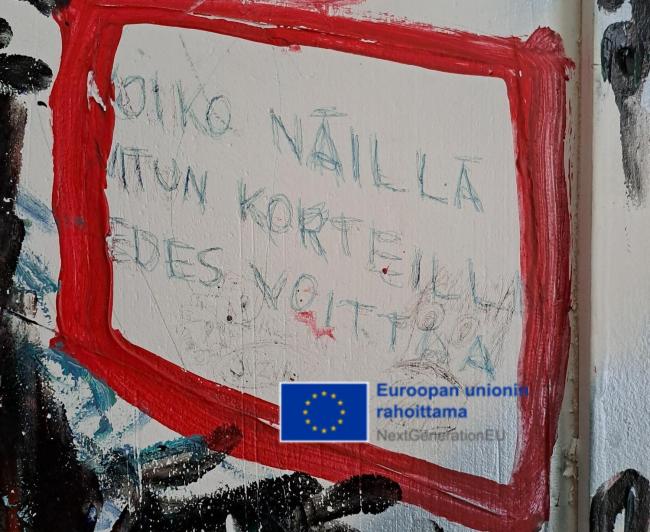 OIKO NÄILLÄ
ITUN KORTEILLA
EDES VOITTAA
Euroopan unionin
rahoittama
NextGenerationEU